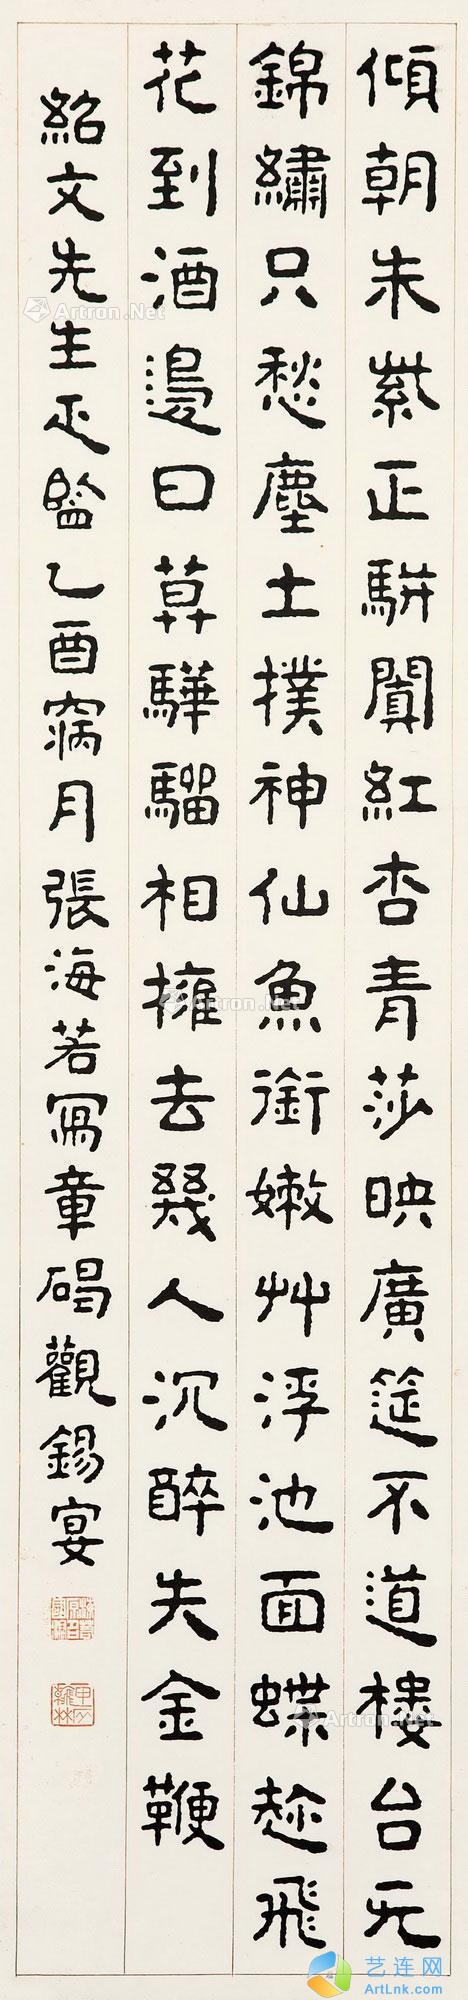 傾朝朱紫正駢闐紅杏青莎映廣筵不道樓台无
錦繡只愁塵土撲神仙魚銜嫩艸浮池面蝶趂飛
花到酒邊日莫驊騮相擁去幾人沉醉失金鞭
紹文先生正監乙酉寎月張海若寫章碣觀錫宴
Artron.Net
Artron.Net
Artron.Net
Artron.Net
Artron.Net
Artron.Net
艺连网
ArtLnk.com